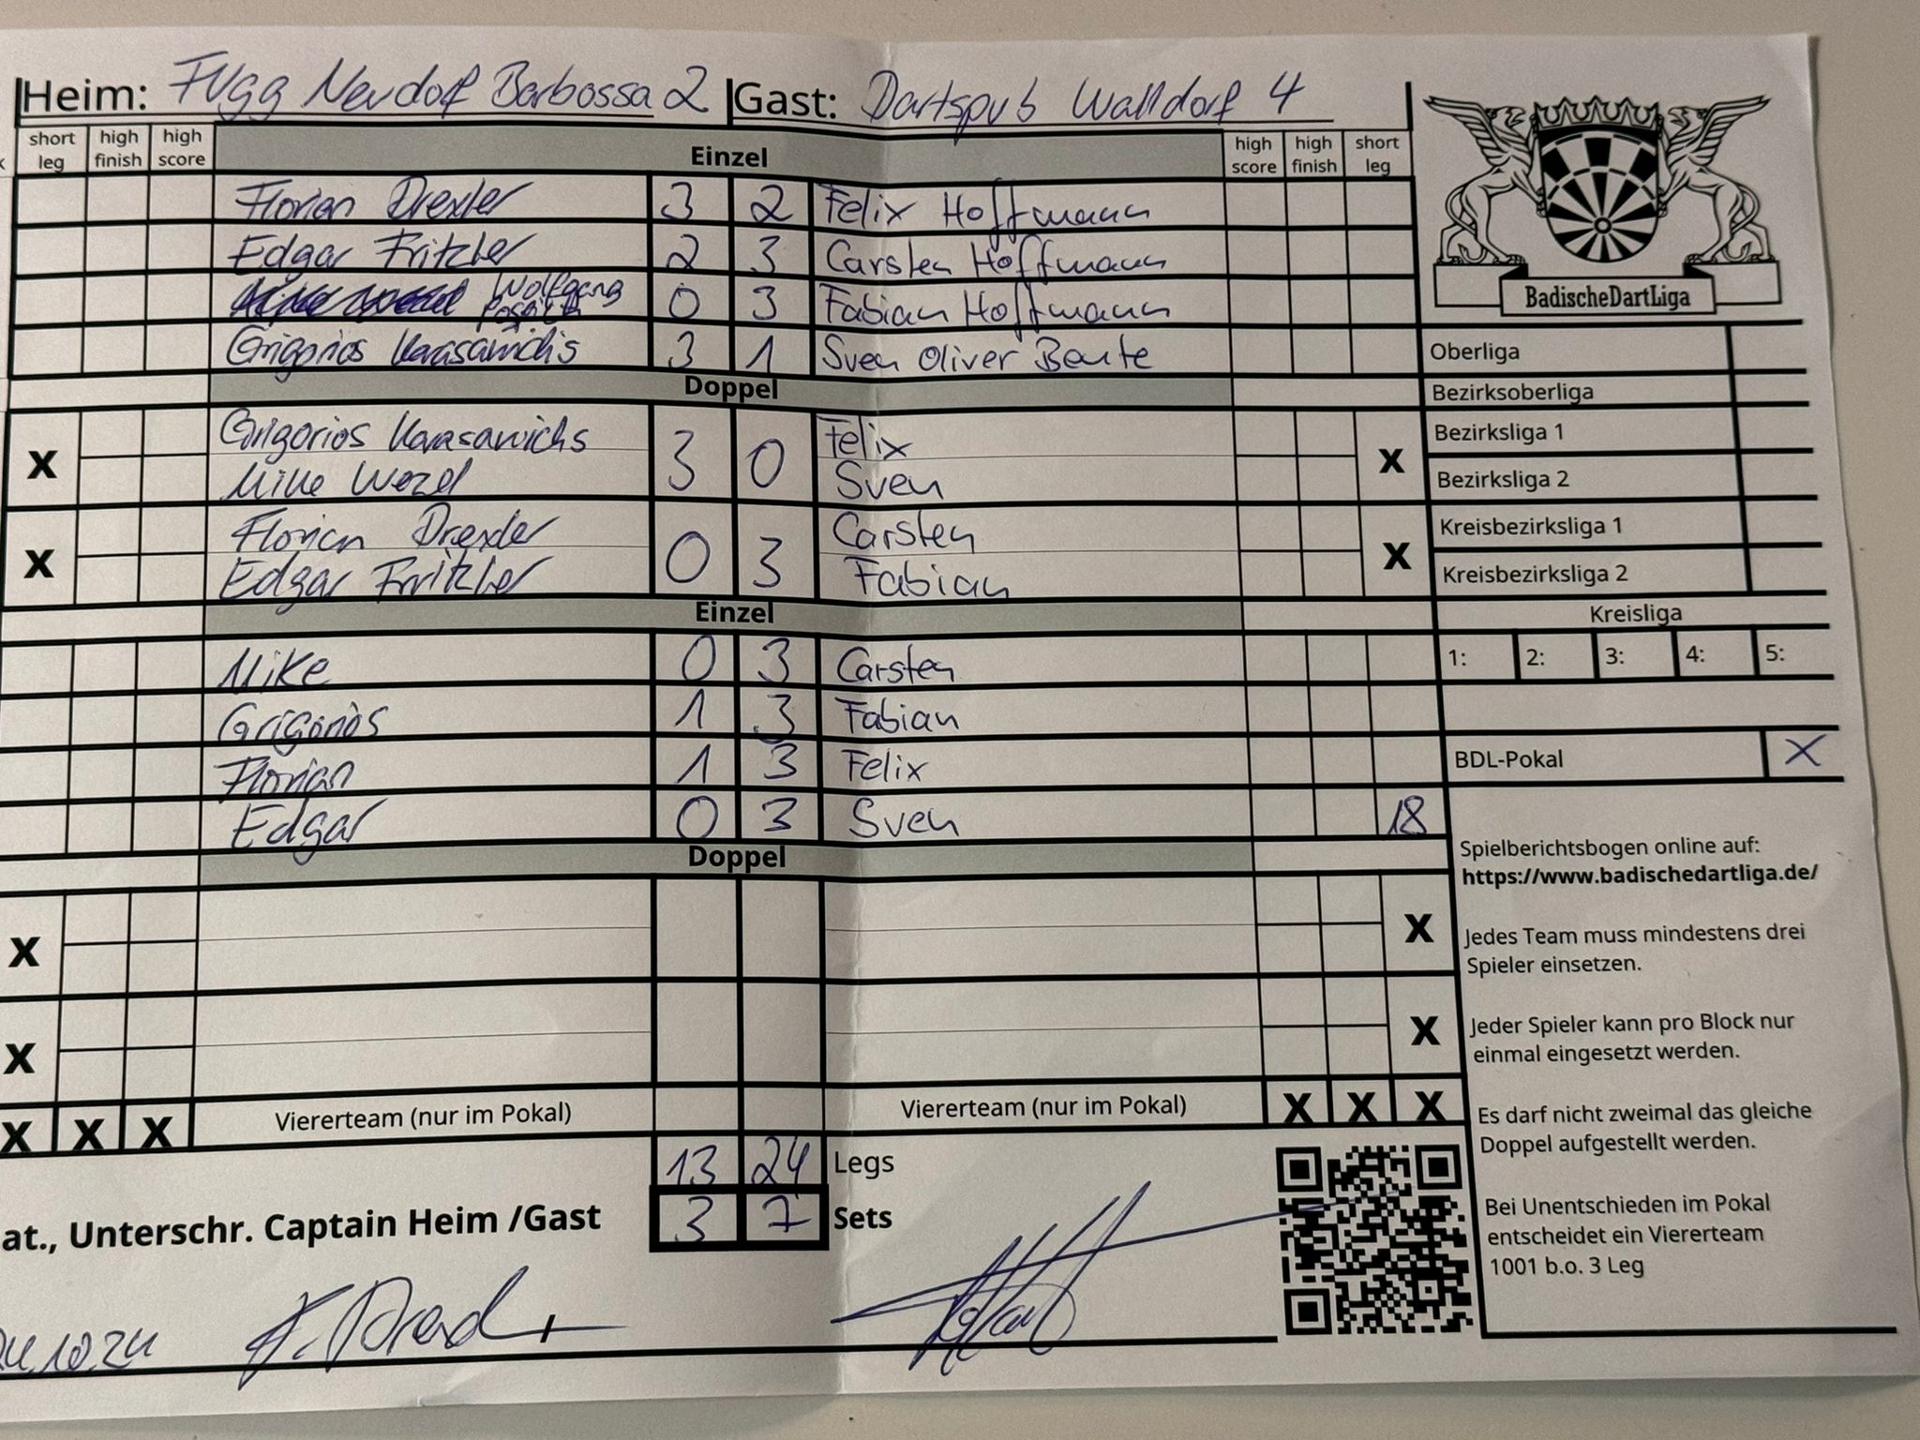 Heim: FVgg Neudorf Barbossa 2 Gast: Dartspub Walldorf 4
short leg high finish high score Einzel high score high finish short leg
Florian Drexler 3 2 Felix Hoffmann
Edgar Fritzler 2 3 Carsten Hoffmann
Wolfgang 0 3 Fabian Hoffmann
Grigorios 3 1 Sven Oliver Beute
Doppel
Grigorios 3 0 Felix
Mike Wezel Sven
X X
Florian Drexler 0 3 Carsten
Edgar Fritzler Fabian
X X
Einzel
Mike 0 3 Carsten
Grigorios 1 3 Fabian
Florian 1 3 Felix
Edgar 0 3 Sven 18
Doppel
X X
X X
X X X Viererteam (nur im Pokal) Viererteam (nur im Pokal) X X X
13 24 Legs
3 7 Sets
at., Unterschr. Captain Heim /Gast
10.24
BadischeDartLiga
Oberliga
Bezirksoberliga
Bezirksliga 1
Bezirksliga 2
Kreisbezirksliga 1
Kreisbezirksliga 2
Kreisliga
1: 2: 3: 4: 5:
BDL-Pokal X
Spielberichtsbogen online auf:
https://www.badischedartliga.de/
Jedes Team muss mindestens drei
Spieler einsetzen.
Jeder Spieler kann pro Block nur
einmal eingesetzt werden.
Es darf nicht zweimal das gleiche
Doppel aufgestellt werden.
Bei Unentschieden im Pokal
entscheidet ein Viererteam
1001 b.o. 3 Leg